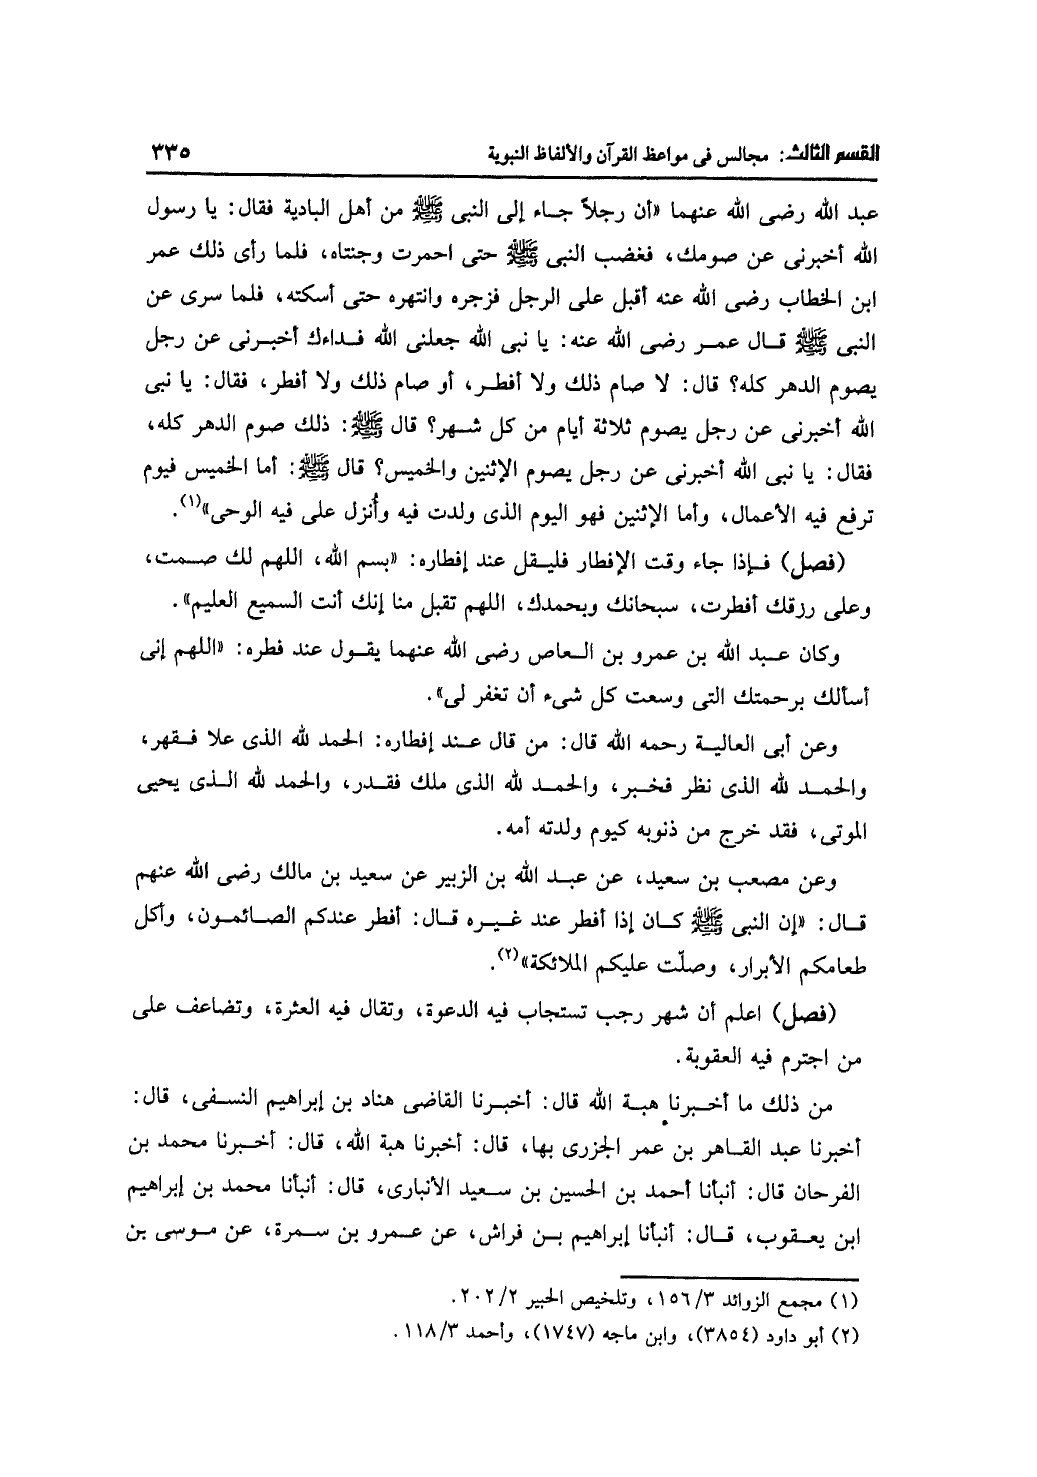 القسم الثالث: مجالس فى مواعظ القرآن والألفاظ النبوية ٣٣٥
عبد الله رضى الله عنهما «أن رجلاً جاء إلى النبى ﷺ من أهل البادية فقال: يا رسول
الله أخبرنى عن صومك، فغضب النبى ﷺ حتى احمرت وجنتاه، فلما رأى ذلك عمر
ابن الخطاب رضى الله عنه أقبل على الرجل فزجره وانتهره حتى أسكته، فلما سرى عن
النبى ﷺ قال عمر رضى الله عنه: يا نبى الله جعلنى الله فداءك أخبرنى عن رجل
يصوم الدهر كله؟ قال: لا صام ذلك ولا أفطر، أو صام ذلك ولا أفطر، فقال: يا نبى
الله أخبرنى عن رجل يصوم ثلاثة أيام من كل شهر؟ قال ﷺ: ذلك صوم الدهر كله،
فقال: يا نبى الله أخبرنى عن رجل يصوم الإثنين والخميس؟ قال ﷺ: أما الخميس فيوم
ترفع فيه الأعمال، وأما الإثنين فهو اليوم الذى ولدت فيه وأُنزل على فيه الوحى»(١).
(فصل) فإذا جاء وقت الإفطار فليقل عند إفطاره: «بسم الله، اللهم لك صمت،
وعلى رزقك أفطرت، سبحانك وبحمدك، اللهم تقبل منا إنك أنت السميع العليم».
وكان عبد الله بن عمرو بن العاص رضى الله عنهما يقول عند فطره: «اللهم إنى
أسألك برحمتك التى وسعت كل شىء أن تغفر لى».
وعن أبى العالية رحمه الله قال: من قال عند إفطاره: الحمد لله الذى علا فقهر،
والحمد لله الذى نظر فخبر، والحمد لله الذى ملك فقدر، والحمد لله الذى يحيى
الموتى، فقد خرج من ذنوبه كيوم ولدته أمه.
وعن مصعب بن سعيد، عن عبد الله بن الزبير عن سعيد بن مالك رضى الله عنهم
قال: «إن النبى ﷺ كان إذا أفطر عند غيره قال: أفطر عندكم الصائمون، وأكل
طعامكم الأبرار، وصلّت عليكم الملائكة»(٢).
(فصل) اعلم أن شهر رجب تستجاب فيه الدعوة، وتقال فيه العثرة، وتضاعف على
من اجترم فيه العقوبة.
من ذلك ما أخبرنا هبة الله قال: أخبرنا القاضى هناد بن إبراهيم النسفى، قال:
أخبرنا عبد القاهر بن عمر الجزرى بها، قال: أخبرنا هبة الله، قال: أخبرنا محمد بن
الفرحان قال: أنبأنا أحمد بن الحسين بن سعيد الأنبارى، قال: أنبأنا محمد بن إبراهيم
ابن يعقوب، قال: أنبأنا إبراهيم بن فراش، عن عمرو بن سمرة، عن موسى بن
(١) مجمع الزوائد ٣/ ١٥٦، وتلخيص الحبير ٢/ ٢٠٢.
(٢) أبو داود (٣٨٥٤)، وابن ماجه (١٧٤٧)، وأحمد ٣/ ١١٨.